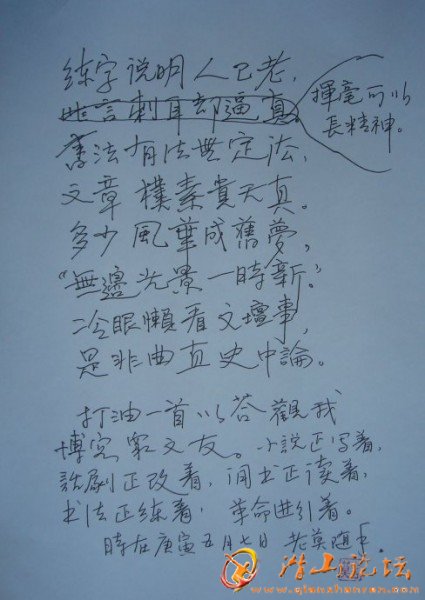 练字说明人已老，
此言刺耳却逼真。
揮毫可以
長精神。
書法有法無定法，
文章樸素貴天真。
多少風華成舊夢，
“無邊光景一時新。”
冷眼懶看文壇事，
是非曲直史中論。
打油一首以答觀我
博客眾文友。小說正写着，
話劇正改着，闲书正读着，
书法正练着，革命进行着。
時在庚寅五月七日 老莫随手
www.qianshanren.com